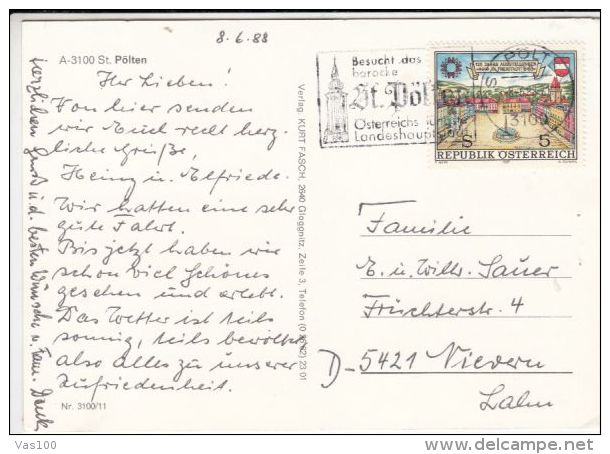 8.6.88
A-3100 St. Pölten
Ihr Lieben!
Von hier senden
wir Euch recht herz-
liche Grüße,
Heinz u. Elfriede.
Wir hatten eine sehr
gute Fahrt.
Bis jetzt haben wir
schon viel Schönes
gesehen und erlebt.
Das Wetter ist teils
sonnig, teils bewölkt
also alles zu unserer
Zufriedenheit.
Nr. 3100/11
Herzlichen Gruß u. d. besten Wünsche v. Fam. Dank
Verlag KURT FASCH, 2640 Gloggnitz, Zeile 3, Telefon 23 01
Besucht das
barocke
St. Pölten
Österreichs
Landeshauptstadt
REPUBLIK ÖSTERREICH
S 5
Familie
E. u. Wilh. Sauer
Früchterstr. 4
D-5421 Nievern
Lahn
Vas100
www.delcampe.net